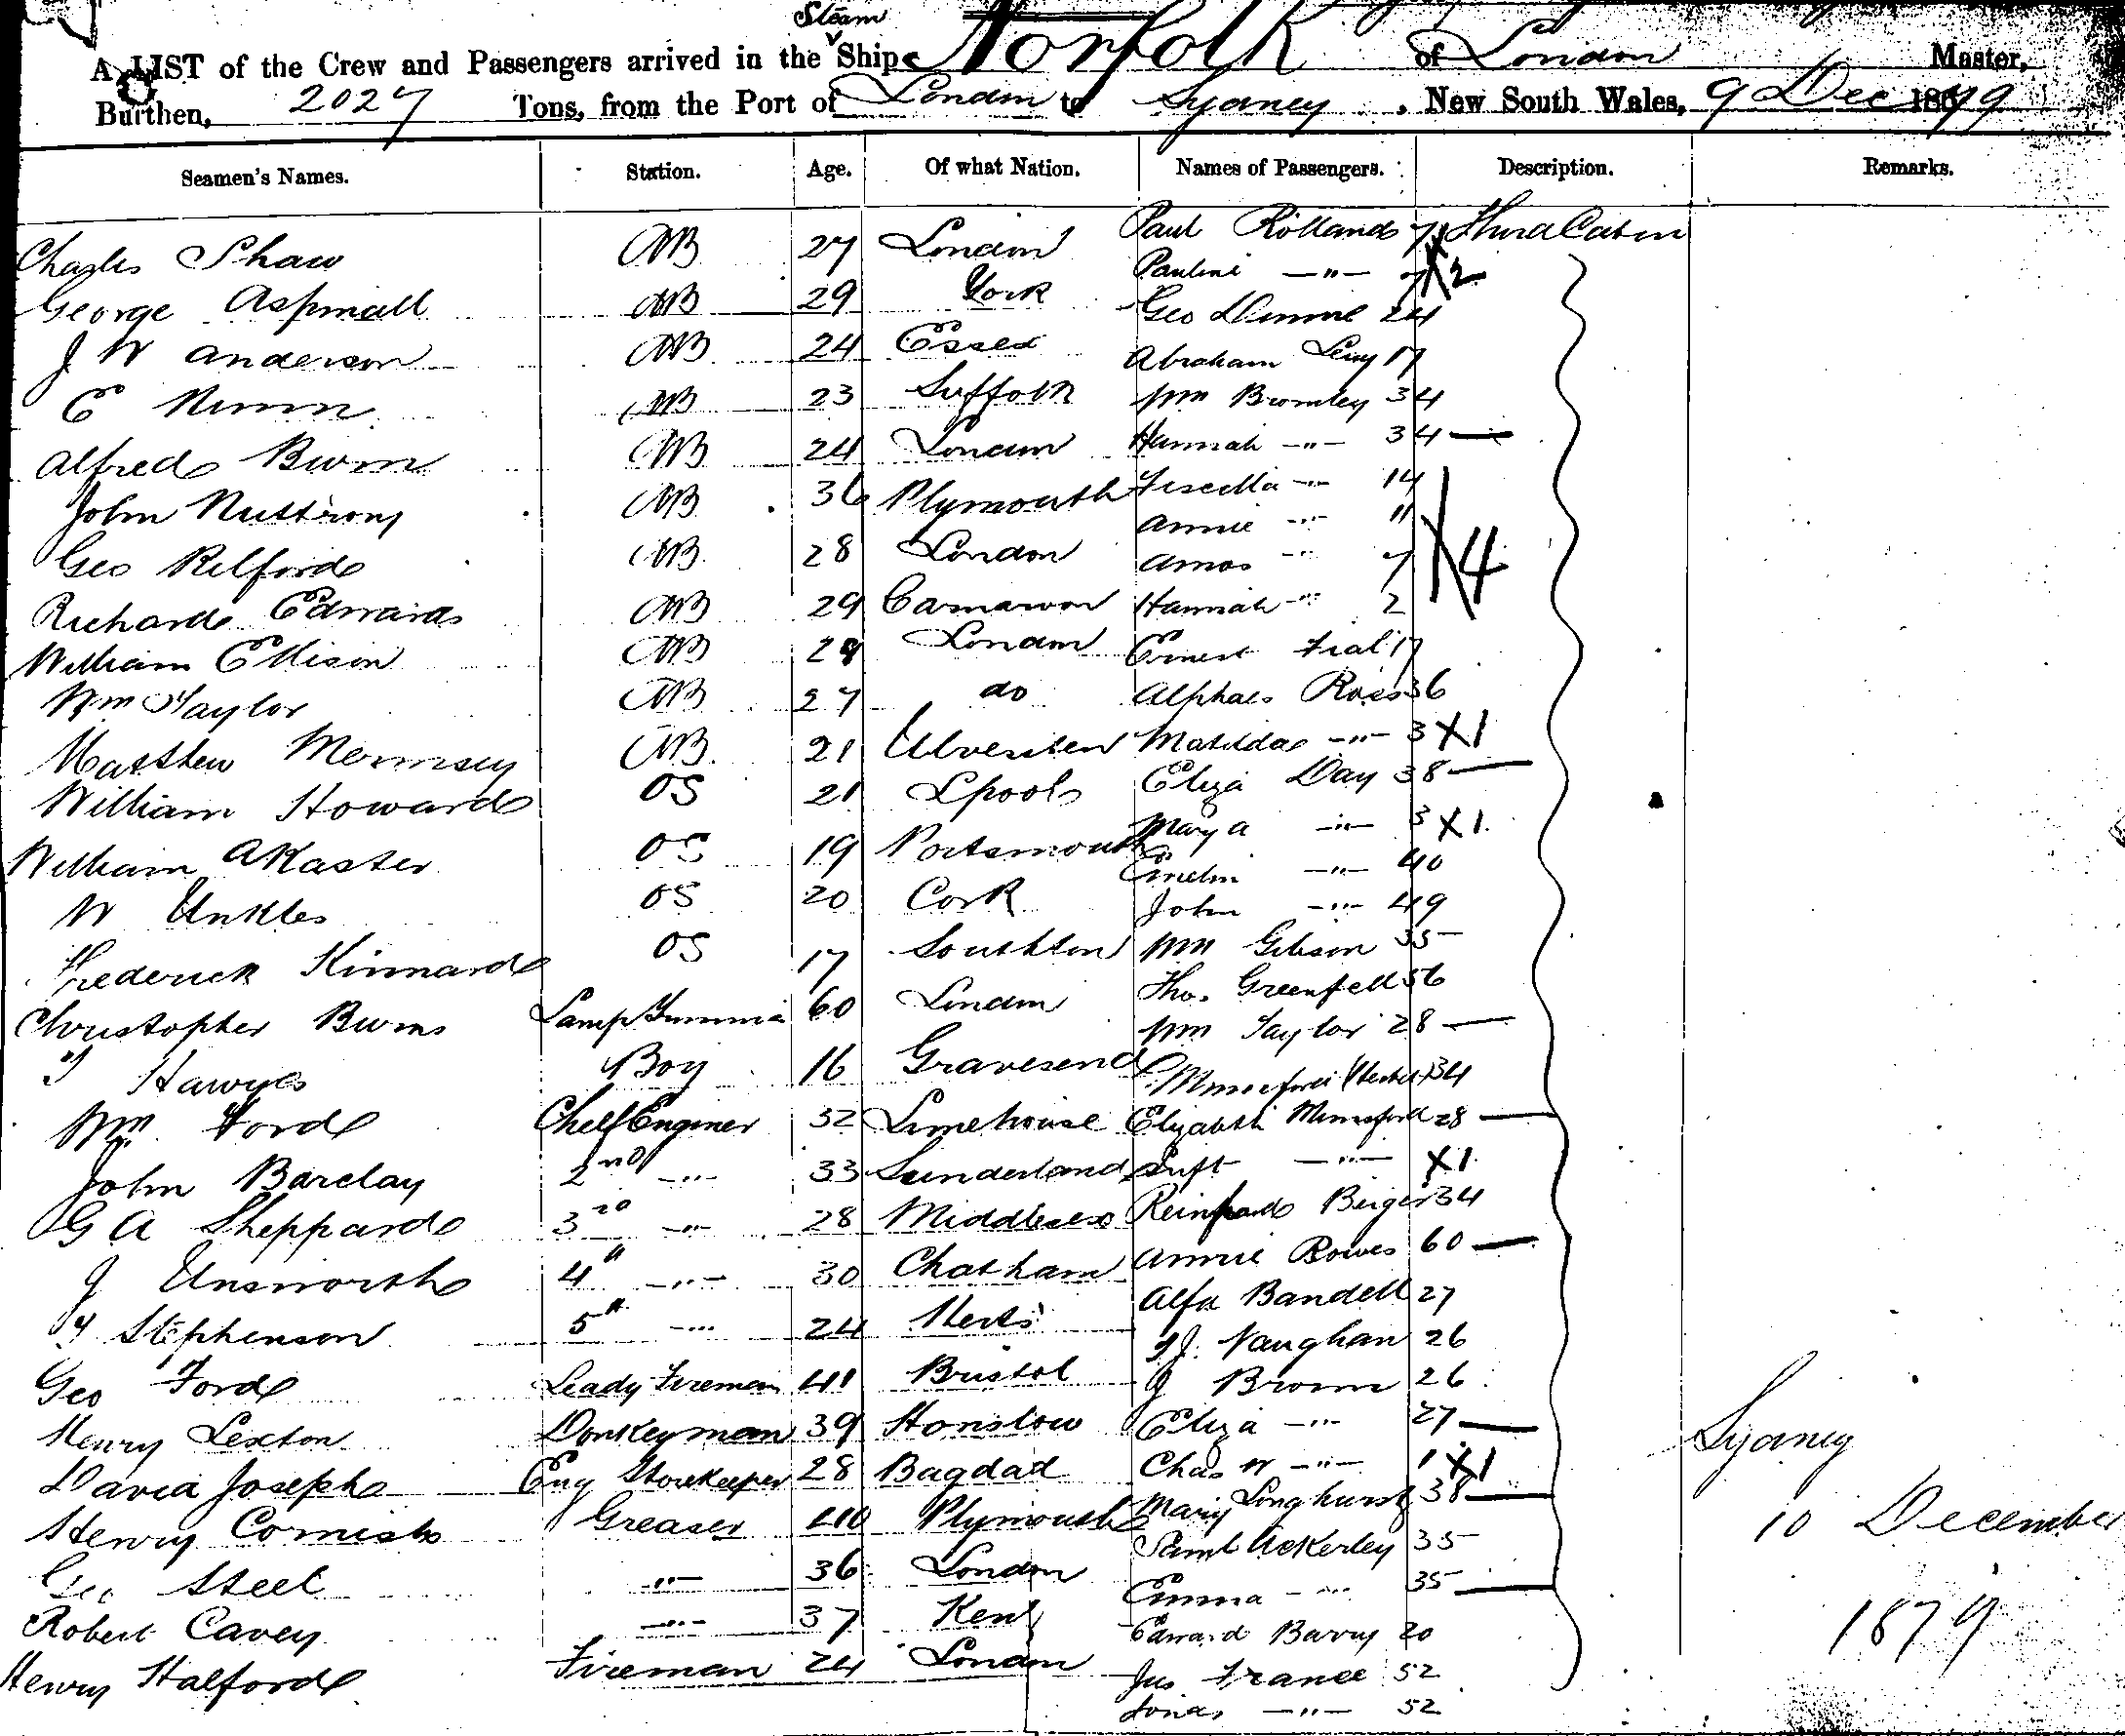 Steam
A LIST of the Crew and Passengers arrived in the Ship Norfolk of London Master,
Burthen, 2027 Tons, from the Port of London to Sydney, New South Wales, 9 Dec 1879
Seamen's Names. Station. Age. Of what Nation. Names of Passengers. Description. Remarks.
Charles Shaw AB 27 London Paul Rolland 7 Third Cabin
George Aspinall AB 29 York Pauline —"— 7 X2
J W Anderson AB 24 Essex Geo 24
E Nunn AB 23 Suffolk Abraham Levy 17
Alfred AB 24 London Wm Bromley 34
John AB 36 Plymouth Hannah —"— 34 —
Geo Relford AB 28 London —"— 14
Richard Edwards AB 29 Carnarvon Annie —"— 11
William Ellison AB London Amos —"— 7 X4
Wm Taylor AB 27 do Hannah —"— 2
Matthew AB 21 Ernest 17
William Howard OS 21 Lpool Ross 36
William Akaster OS 19 Portsmouth Matilda —"— 3 X1
W Unkles OS 20 Cork Eliza Day 38 —
Frederick Kinnard OS 17 Southton Mary A —"— 3 X1
Christopher Burns Lamp 60 London —"— 40
Hawyes Boy 16 Gravesend John —"— 49
Wm Ford Chelf Enginer 32 Limehouse Wm Gibson 35
John Barclay 2nd —"— 33 Sunderland Tho. Greenfell 56
G A Sheppard 3rd —"— 28 Middlesex Wm Taylor 28 —
J Unsworth 4" —"— 30 Chatham 34
Stephenson 5" —"— 24 Herts Elizabeth 28 —
Geo Ford Leadg Fireman 41 Bristol —"— X1
Henry Lexton Donkeyman 39 Honslow 34
David Joseph Eng Storekeeper 28 Bagdad Annie Bowes 60 —
Henry Cornish Greaser 40 Plymouth Alfd Bandell 27
Geo Steel —"— 36 London Vaughan 26
Robert Cavey —"— 37 Kent J Brown 26
Henry Halford Fireman 24 London Eliza —"— 27 —
Chas W —"— 1 X1
Mary Longhurst 38 —
Saml Ackerley 35
Emma —"— 35 —
Edward Barry 20
Jas France 52
—"— 52
Sydney
10 December
1879